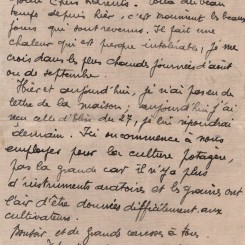 bien chers Parents. Voilà du beau
temps depuis hier, c'est vraiment les beaux
jours qui sont revenus. Il fait une
chaleur qui est presque intolérable, je me
crois dans les plus chaudes journées d'août
ou de septembre.
Hier et aujourd'hui, je n'ai pas eu de
lettre de la maison; aujourd'hui j'ai
eu celle d' du 27, je lui répondrai
demain. Ici on commence à nous
employer pour la culture potagère,
pas la grande car il n'y a plus
d'instruments aratoires et les graines ont
l'air d'être données difficilement aux
cultivateurs.
Bonsoir et de grandes caresses à tous.